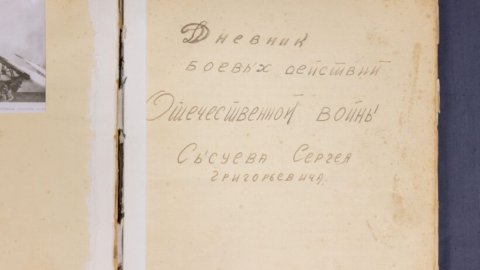 Дневник
боевых действий
Отечественной войны
Сысуева Сергея
Григорьевича.